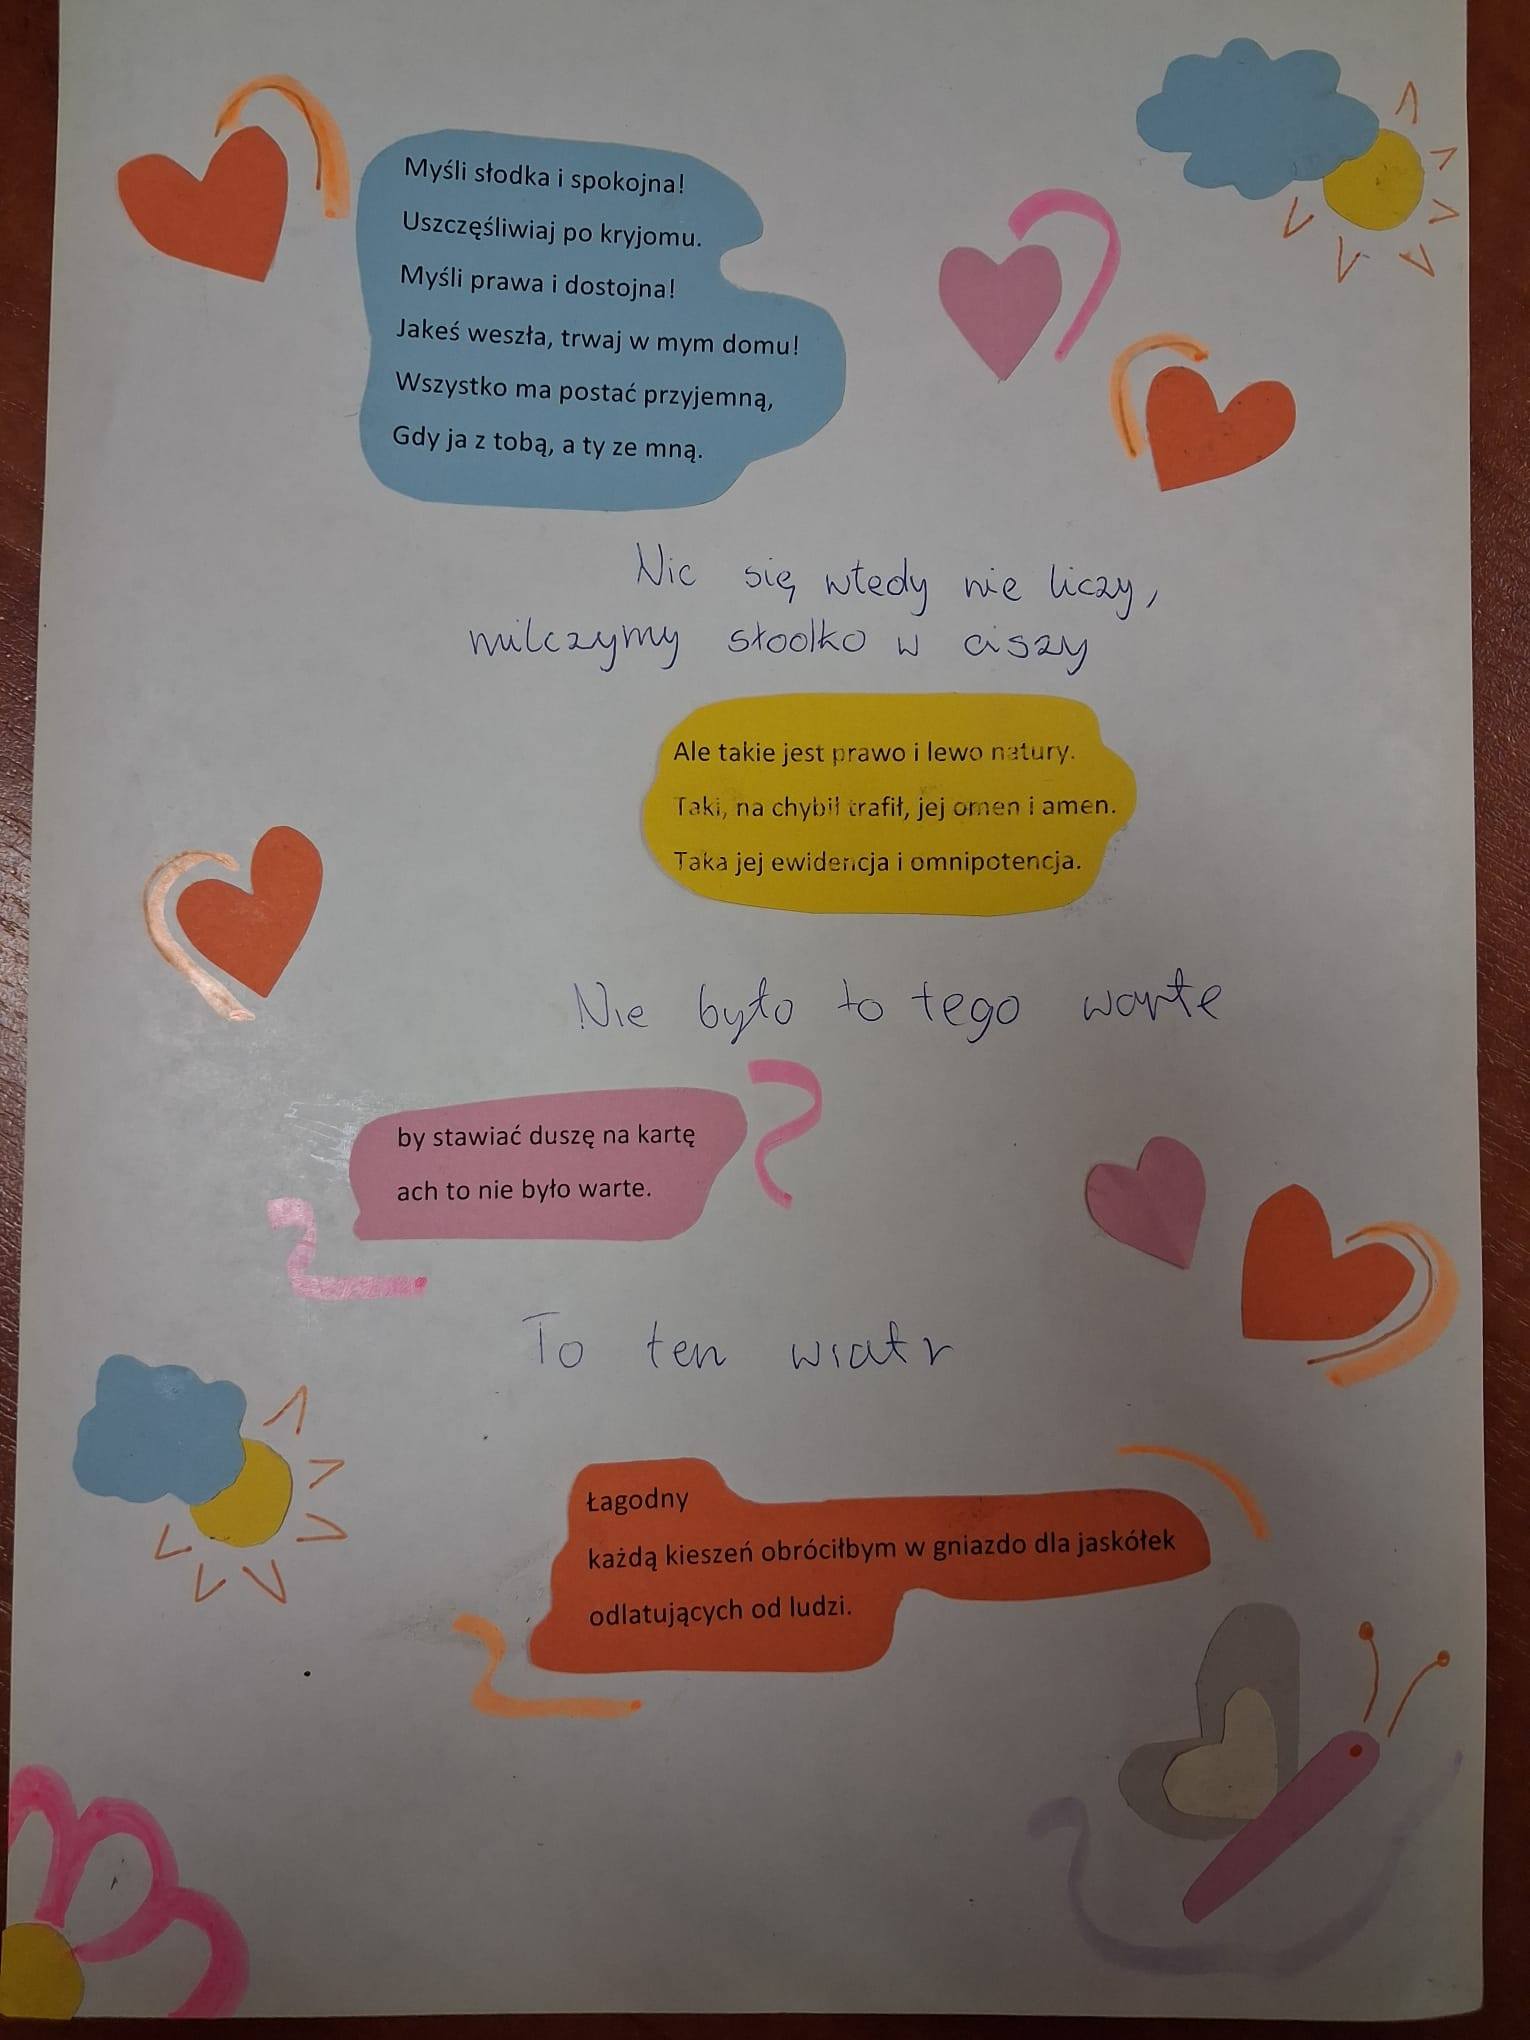 Myśli słodka i spokojna!
Uszczęśliwiaj po kryjomu.
Myśli prawa i dostojna!
Jakeś weszła, trwaj w mym domu!
Wszystko ma postać przyjemną,
Gdy ja z tobą, a ty ze mną.
Nic się wtedy nie liczy,
milczymy słodko w ciszy
Ale takie jest prawo i lewo natury.
Taki, na chybił trafił, jej omen i amen.
Taka jej ewidencja i omnipotencja.
Nie było to tego warte
by stawiać duszę na kartę
ach to nie było warte.
To ten wiatr
Łagodny
każdą kieszeń obróciłbym w gniazdo dla jaskółek
odlatujących od ludzi.